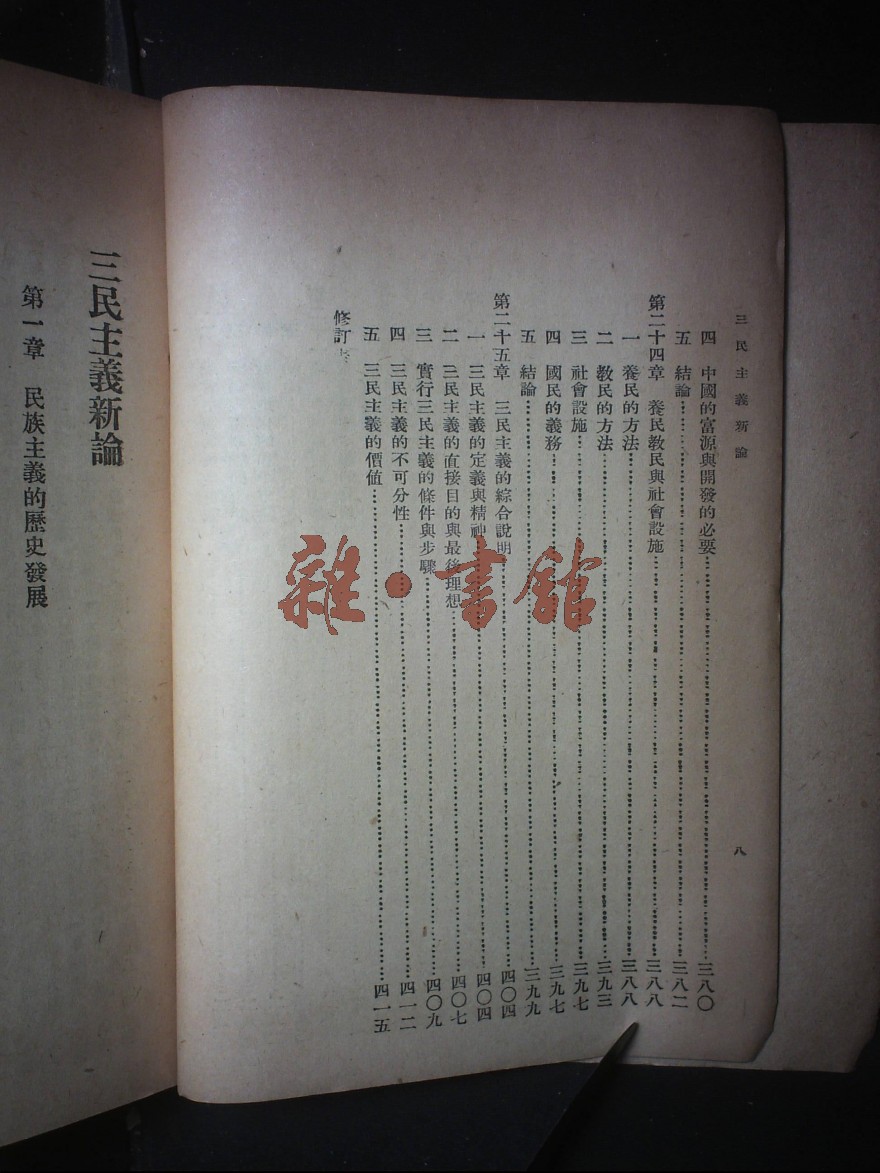 三民主義新論
八
四 中國的富源與開發的必要 三八〇
五 結論 三八二
第二十四章 養民教民與社會設施 三八八
一 養民的方法 三八八
二 教民的方法 三九三
三 社會設施 三九七
四 國民的義務 三九七
五 結論 三九九
第二十五章 三民主義的綜合說明 四〇四
一 三民主義的定義與精神 四〇四
二 三民主義的直接目的與最後理想 四〇七
三 實行三民主義的條件與步驟 四〇九
四 三民主義的不可分性 四一二
五 三民主義的價値 四一五
修訂
三民主義新論
第一章 民族主義的歷史發展
雜·書館